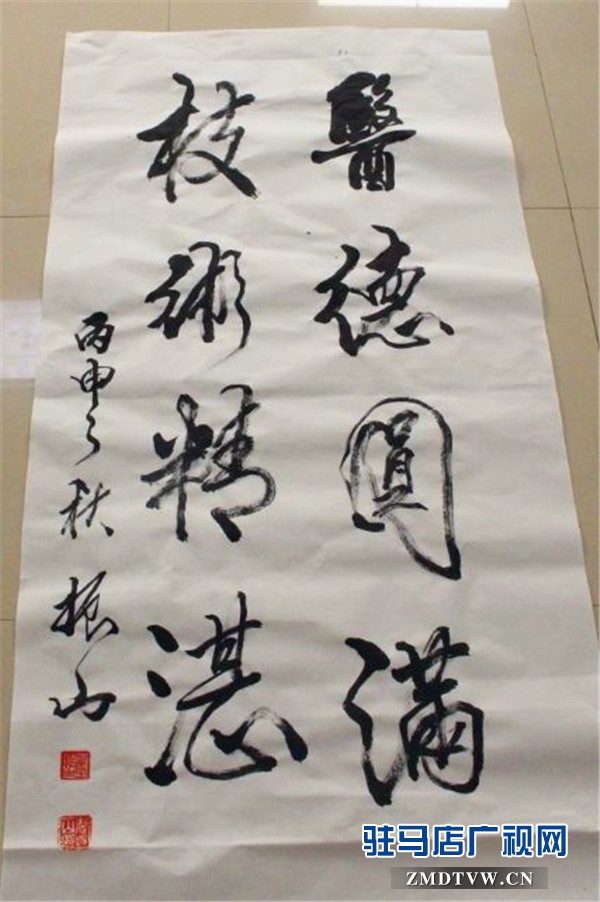 醫德圓滿
技術精湛
丙申之秋 振山
驻马店广视网
ZMDTVW.CN